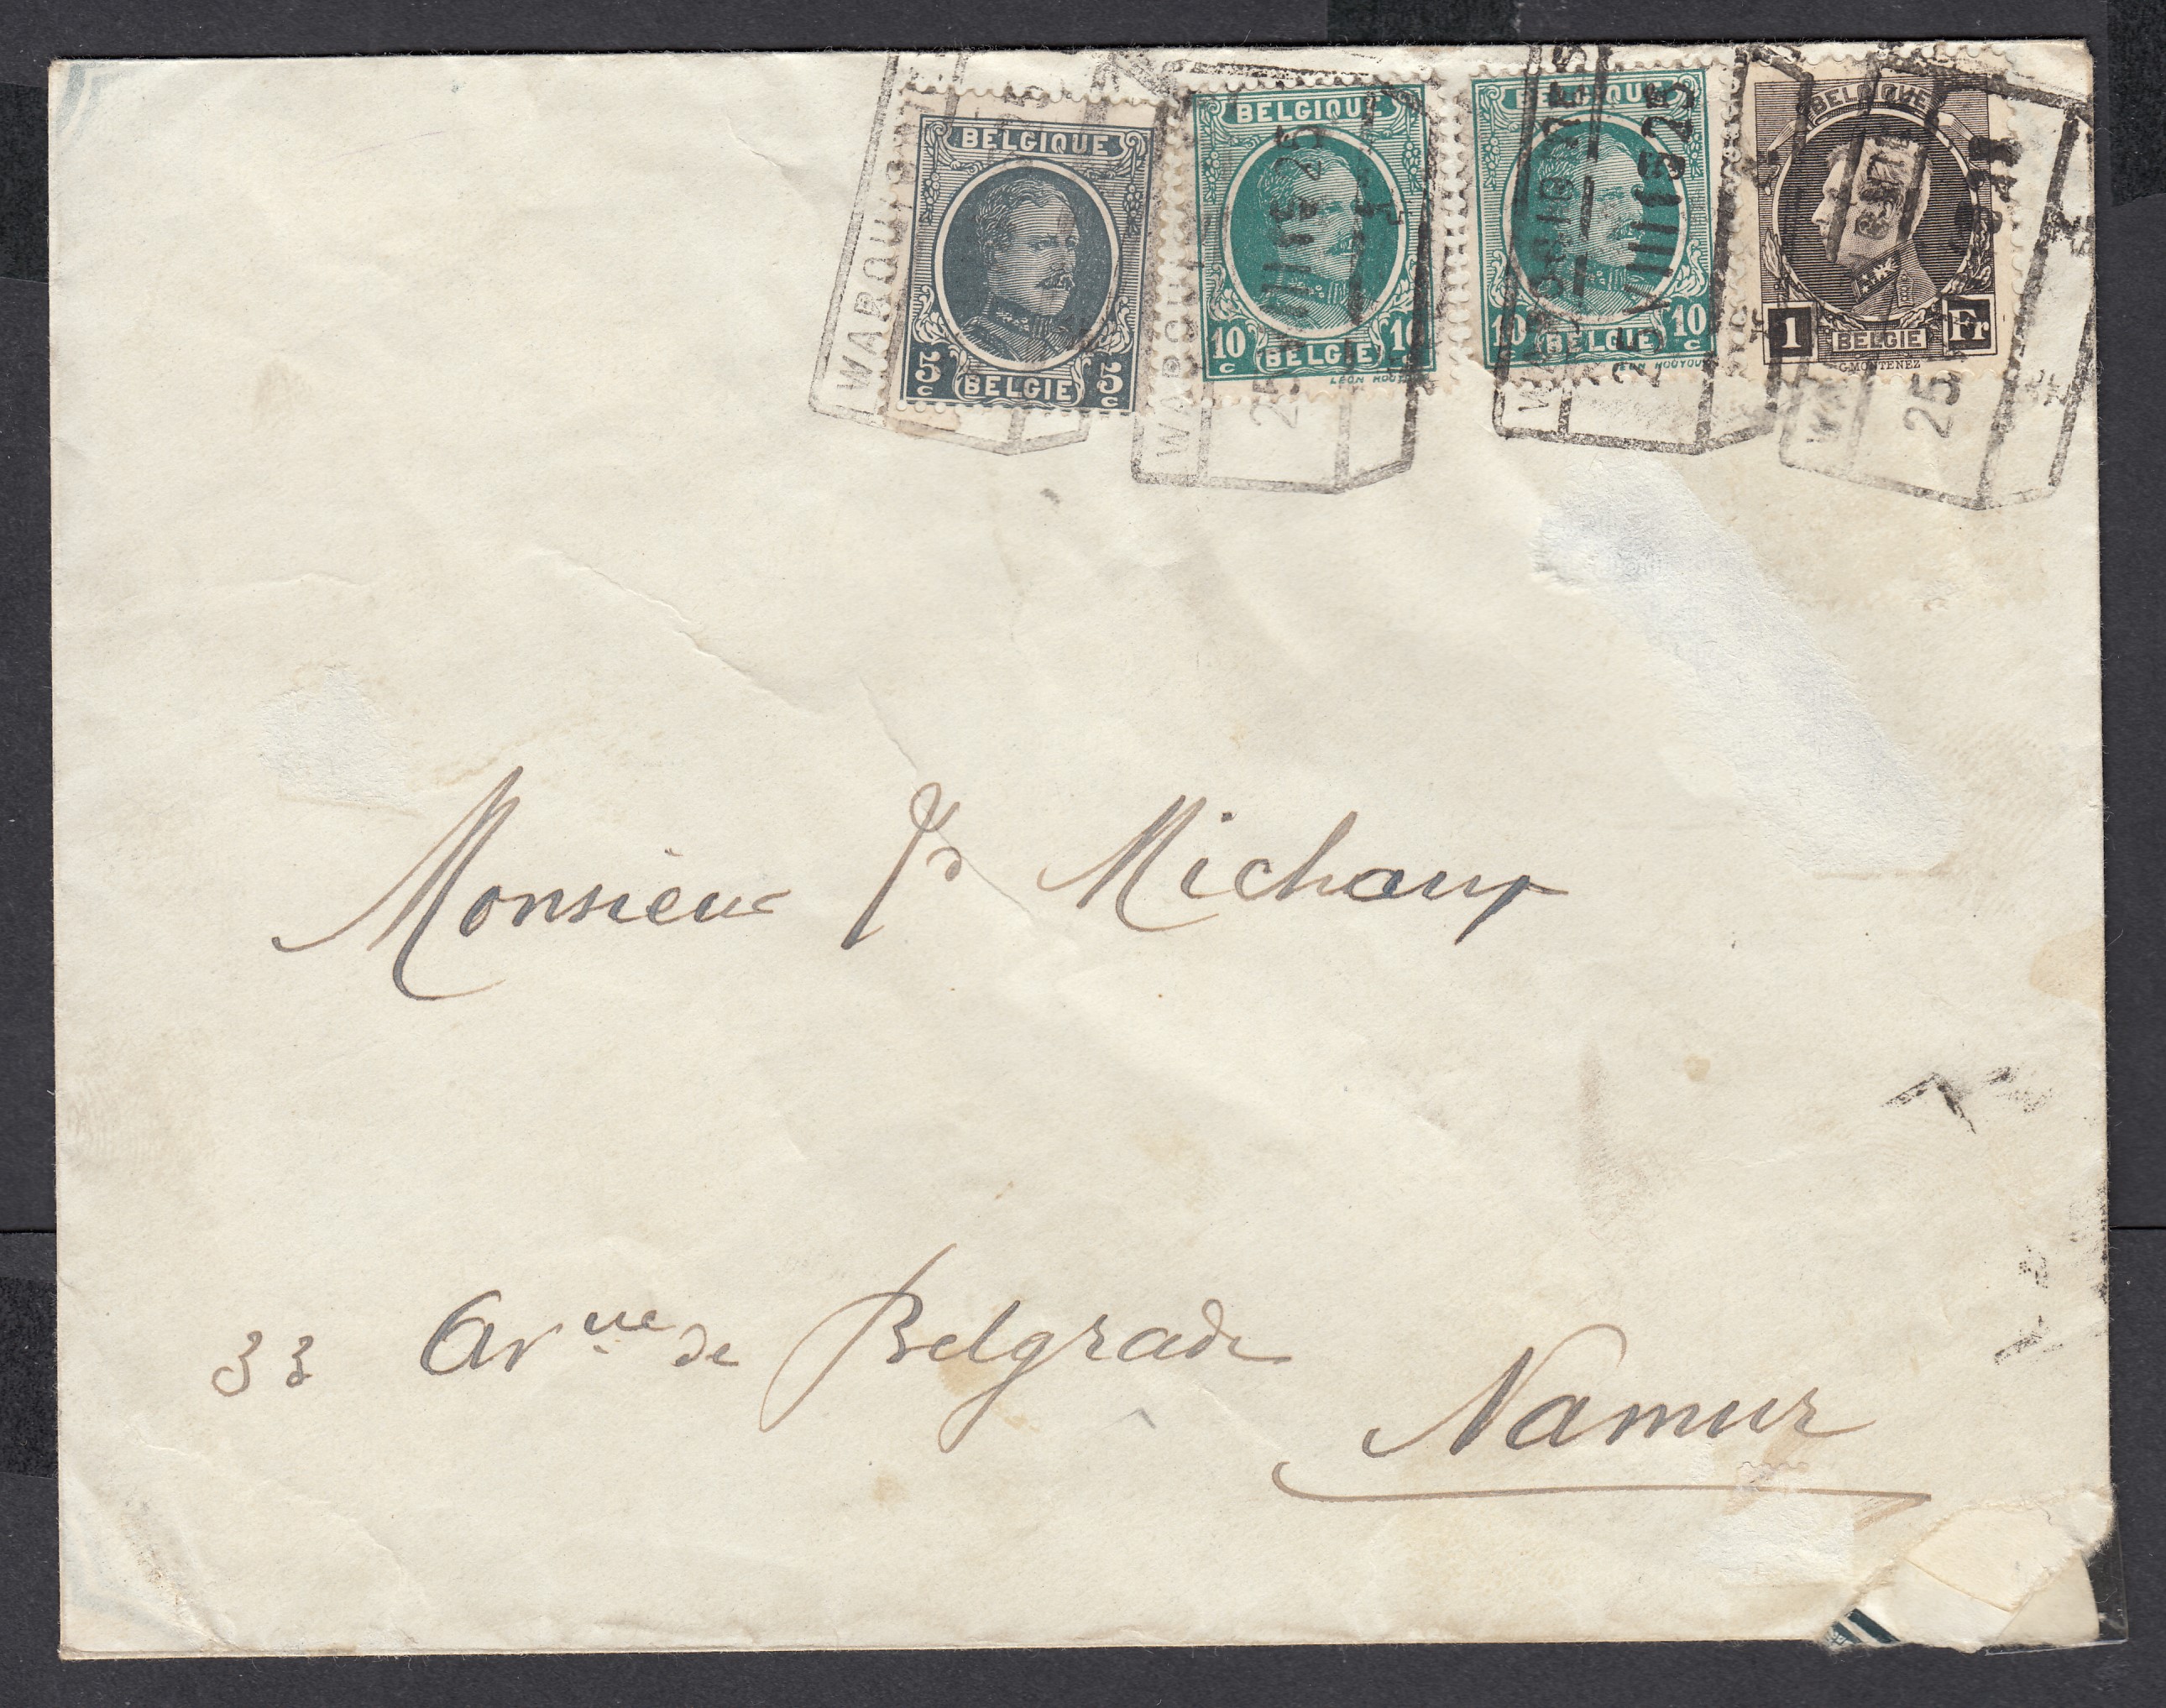 BELGIQUE
5c BELGIE 5c
BELGIQUE
10c BELGIE 10c
BELGIQUE
10c BELGIE 10c
BELGIQUE
1 BELGIE Fr
G.MONTENEZ
25 VIII 1925
Monsieur Michaux
33 Avnue de Belgrade
Namur